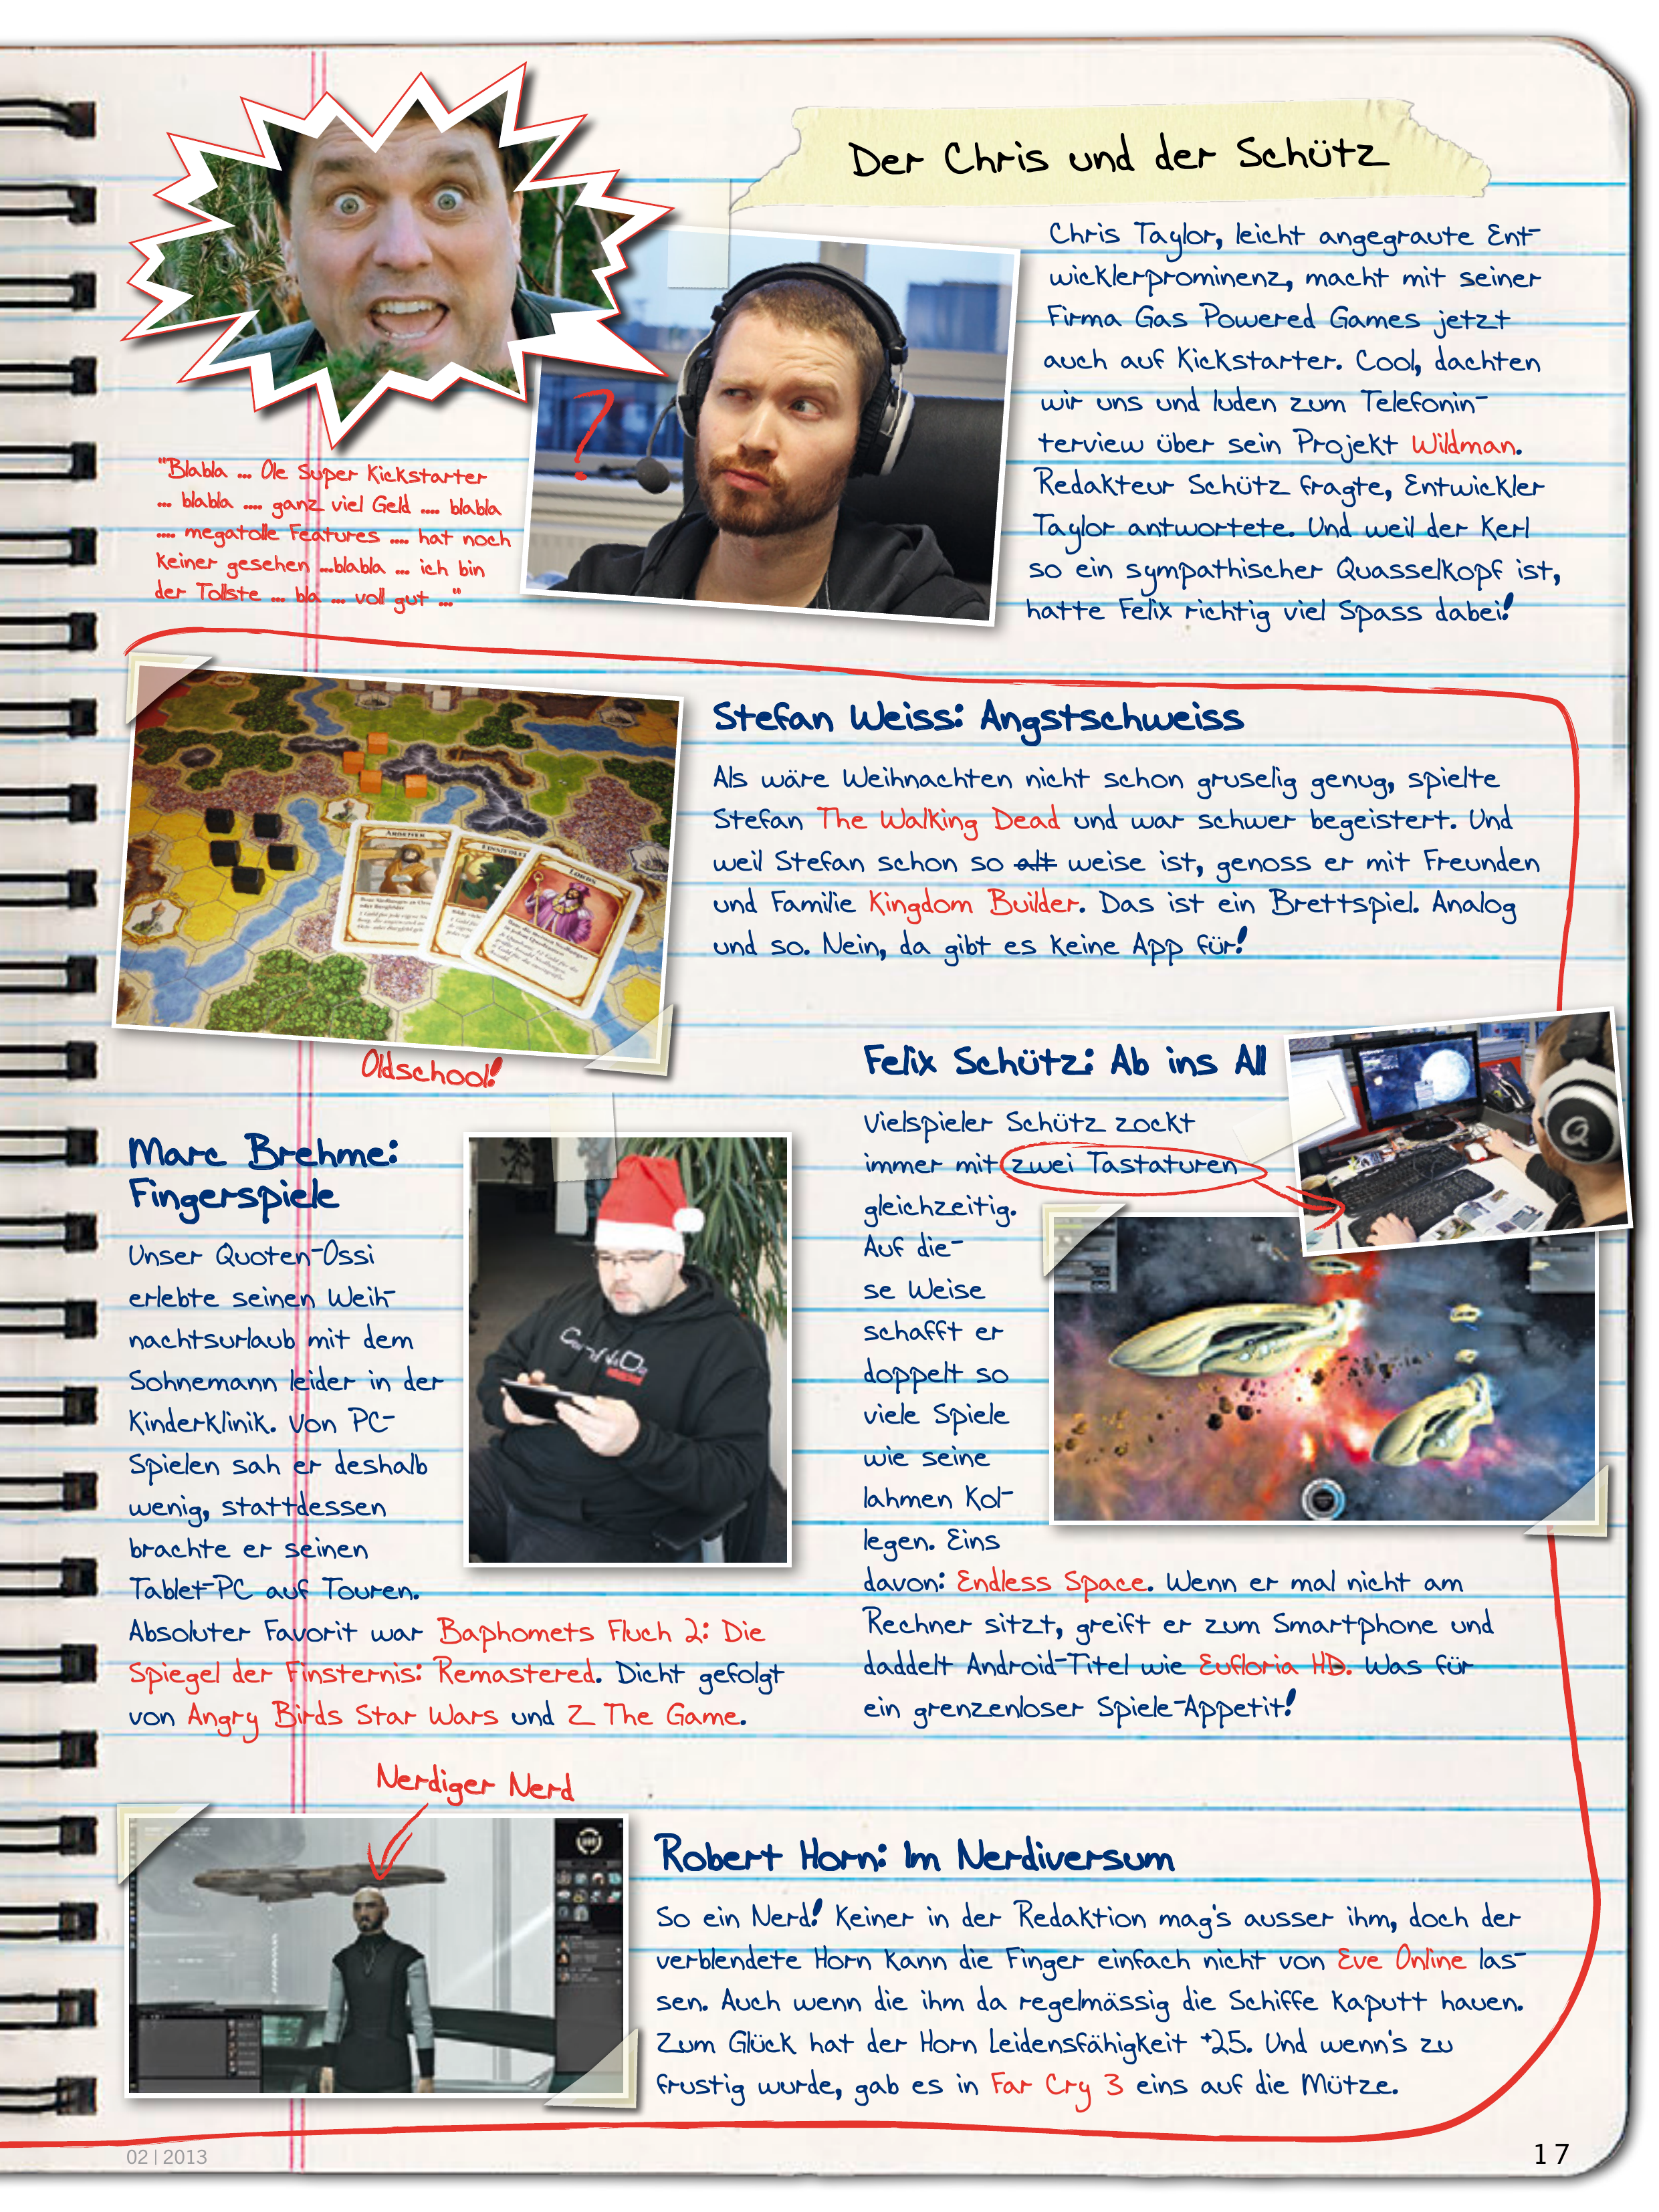 Der Chris und der Schütz
Chris Taylor, leicht angegraute Ent-
wicklerprominenz, macht mit seiner
Firma Gas Powered Games jetzt
auch auf Kickstarter. Cool, dachten
wir uns und luden zum Telefonin-
terview über sein Projekt Wildman.
Redakteur Schütz fragte, Entwickler
Taylor antwortete. Und weil der Kerl
so ein sympathischer Quasselkopf ist,
hatte Felix richtig viel Spass dabei!
?
"Blabla ... Ole Super Kickstarter
... blabla .... ganz viel Geld .... blabla
.... megatolle Features .... hat noch
keiner gesehen ...blabla ... ich bin
der Tollste ... bla ... voll gut ..."
Stefan Weiss: Angstschweiss
Als wäre Weihnachten nicht schon gruselig genug, spielte
Stefan The Walking Dead und war schwer begeistert. Und
weil Stefan schon so alt weise ist, genoss er mit Freunden
und Familie Kingdom Builder. Das ist ein Brettspiel. Analog
und so. Nein, da gibt es keine App für!
Oldschool!
Marc Brehme:
Fingerspiele
Unser Quoten-Ossi
erlebte seinen Weih-
nachtsurlaub mit dem
Sohnemann leider in der
Kinderklinik. Von PC-
Spielen sah er deshalb
wenig, stattdessen
brachte er seinen
Tablet-PC auf Touren.
Absoluter Favorit war Baphomets Fluch 2: Die
Spiegel der Finsternis: Remastered. Dicht gefolgt
von Angry Birds Star Wars und Z The Game.
Felix Schütz: Ab ins All
Vielspieler Schütz zockt
immer mit zwei Tastaturen
gleichzeitig.
Auf die-
se Weise
schafft er
doppelt so
viele Spiele
wie seine
lahmen Kol-
legen. Eins
davon: Endless Space. Wenn er mal nicht am
Rechner sitzt, greift er zum Smartphone und
daddelt Android-Titel wie Eufloria HD. Was für
ein grenzenloser Spiele-Appetit!
Nerdiger Nerd
Robert Horn: Im Nerdiversum
So ein Nerd! Keiner in der Redaktion mag's ausser ihm, doch der
verblendete Horn kann die Finger einfach nicht von Eve Online las-
sen. Auch wenn die ihm da regelmässig die Schiffe kaputt hauen.
Zum Glück hat der Horn Leidensfähigkeit +25. Und wenn's zu
frustig wurde, gab es in Far Cry 3 eins auf die Mütze.
02 | 2013
17